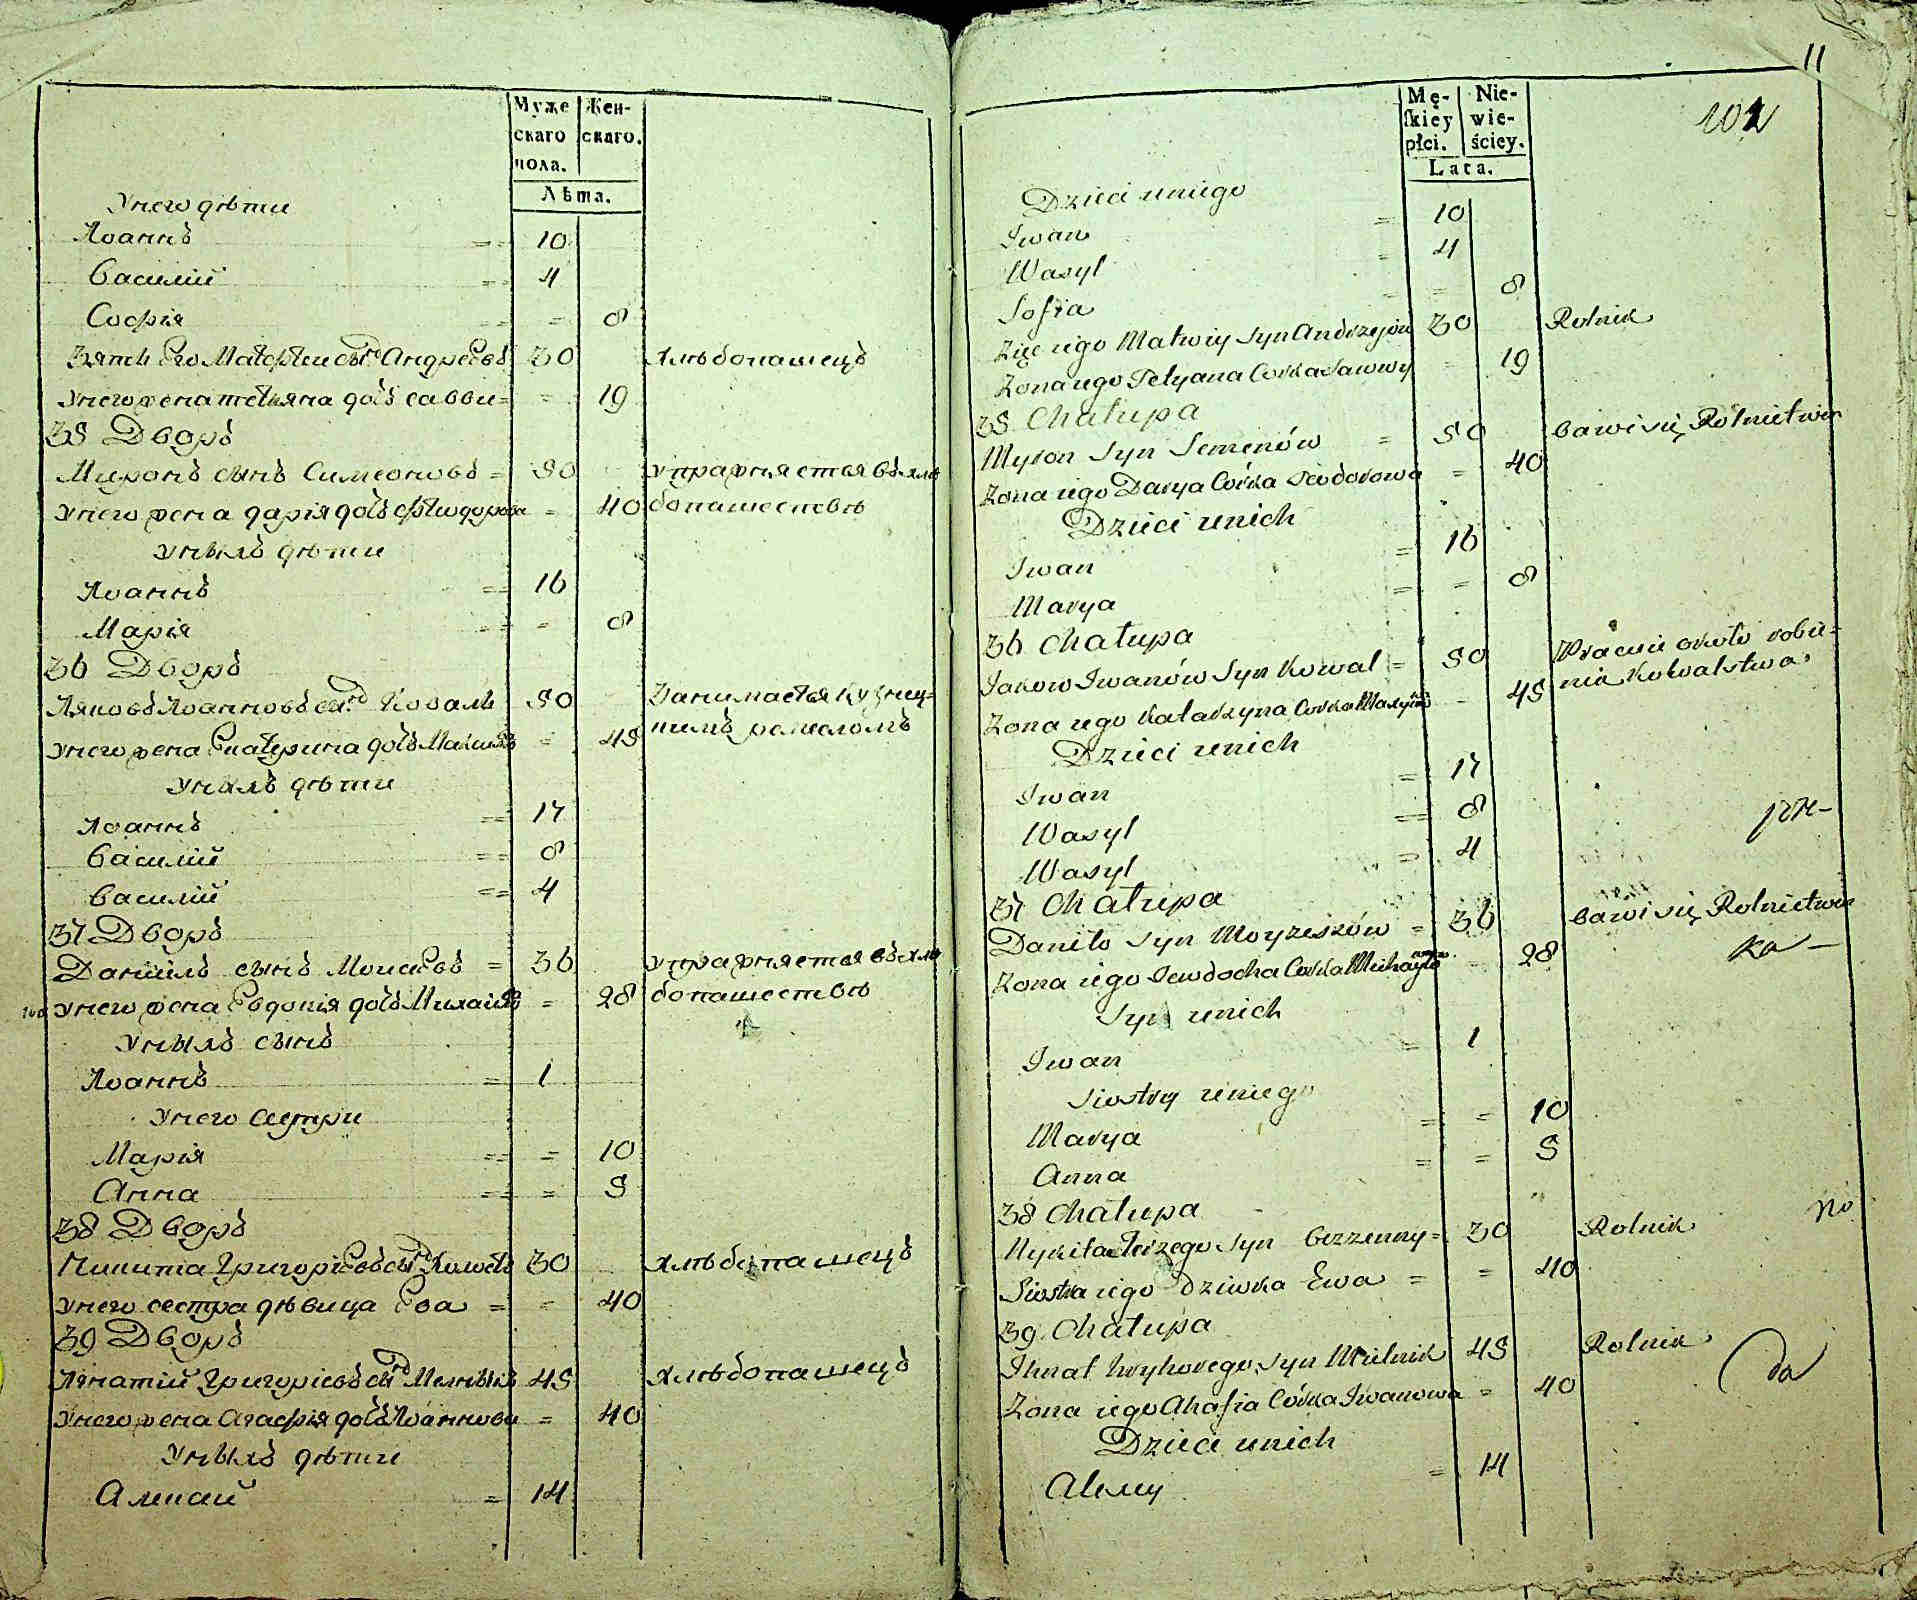 Муже
скаго
пола.
Жен-
скаго.
Лѣта.
Унего дѣти
Іоаннъ = 10
Василий = 4
Софія = 8
Зять Его Матфѣй сынъ Андреевъ 30 хлѣбопашецъ
Унего жена тетяна дочь савви = 19
35 Дворъ
Миронъ сынъ Симеоновъ = 50 упражняется въ хлѣ
Унего жена дарія дочь фѣодорова = 40 бопашествѣ
Унихъ дѣти
Іоаннъ = 16
Марія = 8
36 Дворъ
Яковъ Іоанновъ сынъ Коваль 50 Занимается кузнеч-
Унего жена Екатерина дочь = 45 нимъ ремесломъ
Унихъ дѣти
Іоаннъ = 17
Василий = 8
Василий = 4
37 Дворъ
Даніилъ сынъ Моисеевъ = 36 упражняется въ хлѣ
Унего жена Евдокія дочь Михайло = 28 бопашествѣ
Унихъ сынъ
Іоаннъ = 1
Унего сестри
Марія = = 10
Анна = = 5
38 Дворъ
Никита Григоріевъ сынъ 30 хлѣбопашецъ
Унего сестра дѣвица Ева = = 40
39 Дворъ
Игнатий Григоріевъ сынъ Мелникъ 45 хлѣбопашецъ
Унего жена Агафія дочь Іоаннова = 40
Унихъ дѣти
Алексий = 14
11
102
Mę-
ſkiey
płci.
Nie-
wie-
ściey.
Lata.
Dzieci uniego
Iwan = 10
Wasyl = 4
Sofia = = 8
Zięć iego Matwiy Syn Andrzejów 30 Rolnik
Zona iego Tetyana Corka Sawwy = 19
35 Chałupa
Myron Syn Semenów = 50 bawi się Rolnictwem
Zona iego Darya Córka Fedorowa = 40
Dzieci unich
Iwan = 16
Marya = = 8
36 Chałupa
Jakow Iwanów Syn Kowal = 50 Pracuie około robie-
Zona iego Katarzyna Corka = 45 nia Kowalstwa
Dzieci unich
Iwan = 17
Wasyl = 8
Wasyl = 4
37 Chałupa
Daniło Syn Moyzeszów = 36 bawi się Rolnictwem
Zona iego Jewdocha Corka Michayło = 28 ka —
Syn unich
Iwan = 1
Siostry uniego
Marya = = 10
Anna = = 5
38 Chałupa
Nykita Syn bezzenny = 30 Rolnik no
Siostra iego Dziwka Ewa = = 40
39. Chałupa
Ihnat hryhorego Syn Mielnik 45 Rolnik
Zona iego Ahafia Córka Iwanowa = 40 da
Dzieci unich
= 14